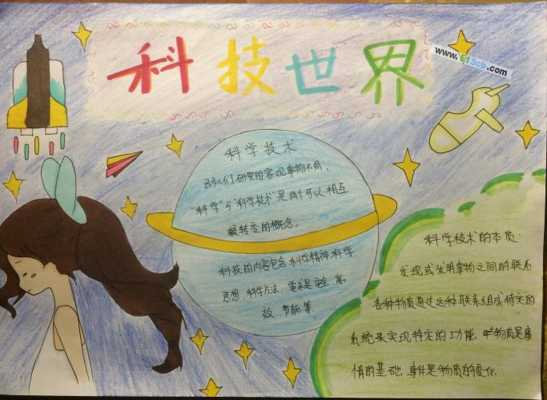 科技世界
www.
.com
科学技术
们研究的客观事物不同,
"科学"与"科学技术"是两个可以相互
概念。
科技的内容包含:科学精神 科学
思想 科学方法
效、节能等
科学技术的本质:
发现或发明事物之间的联系
各种物质通过这种联系组成特定的
系统来实现特定的功能
的基础 事件是物质的变化